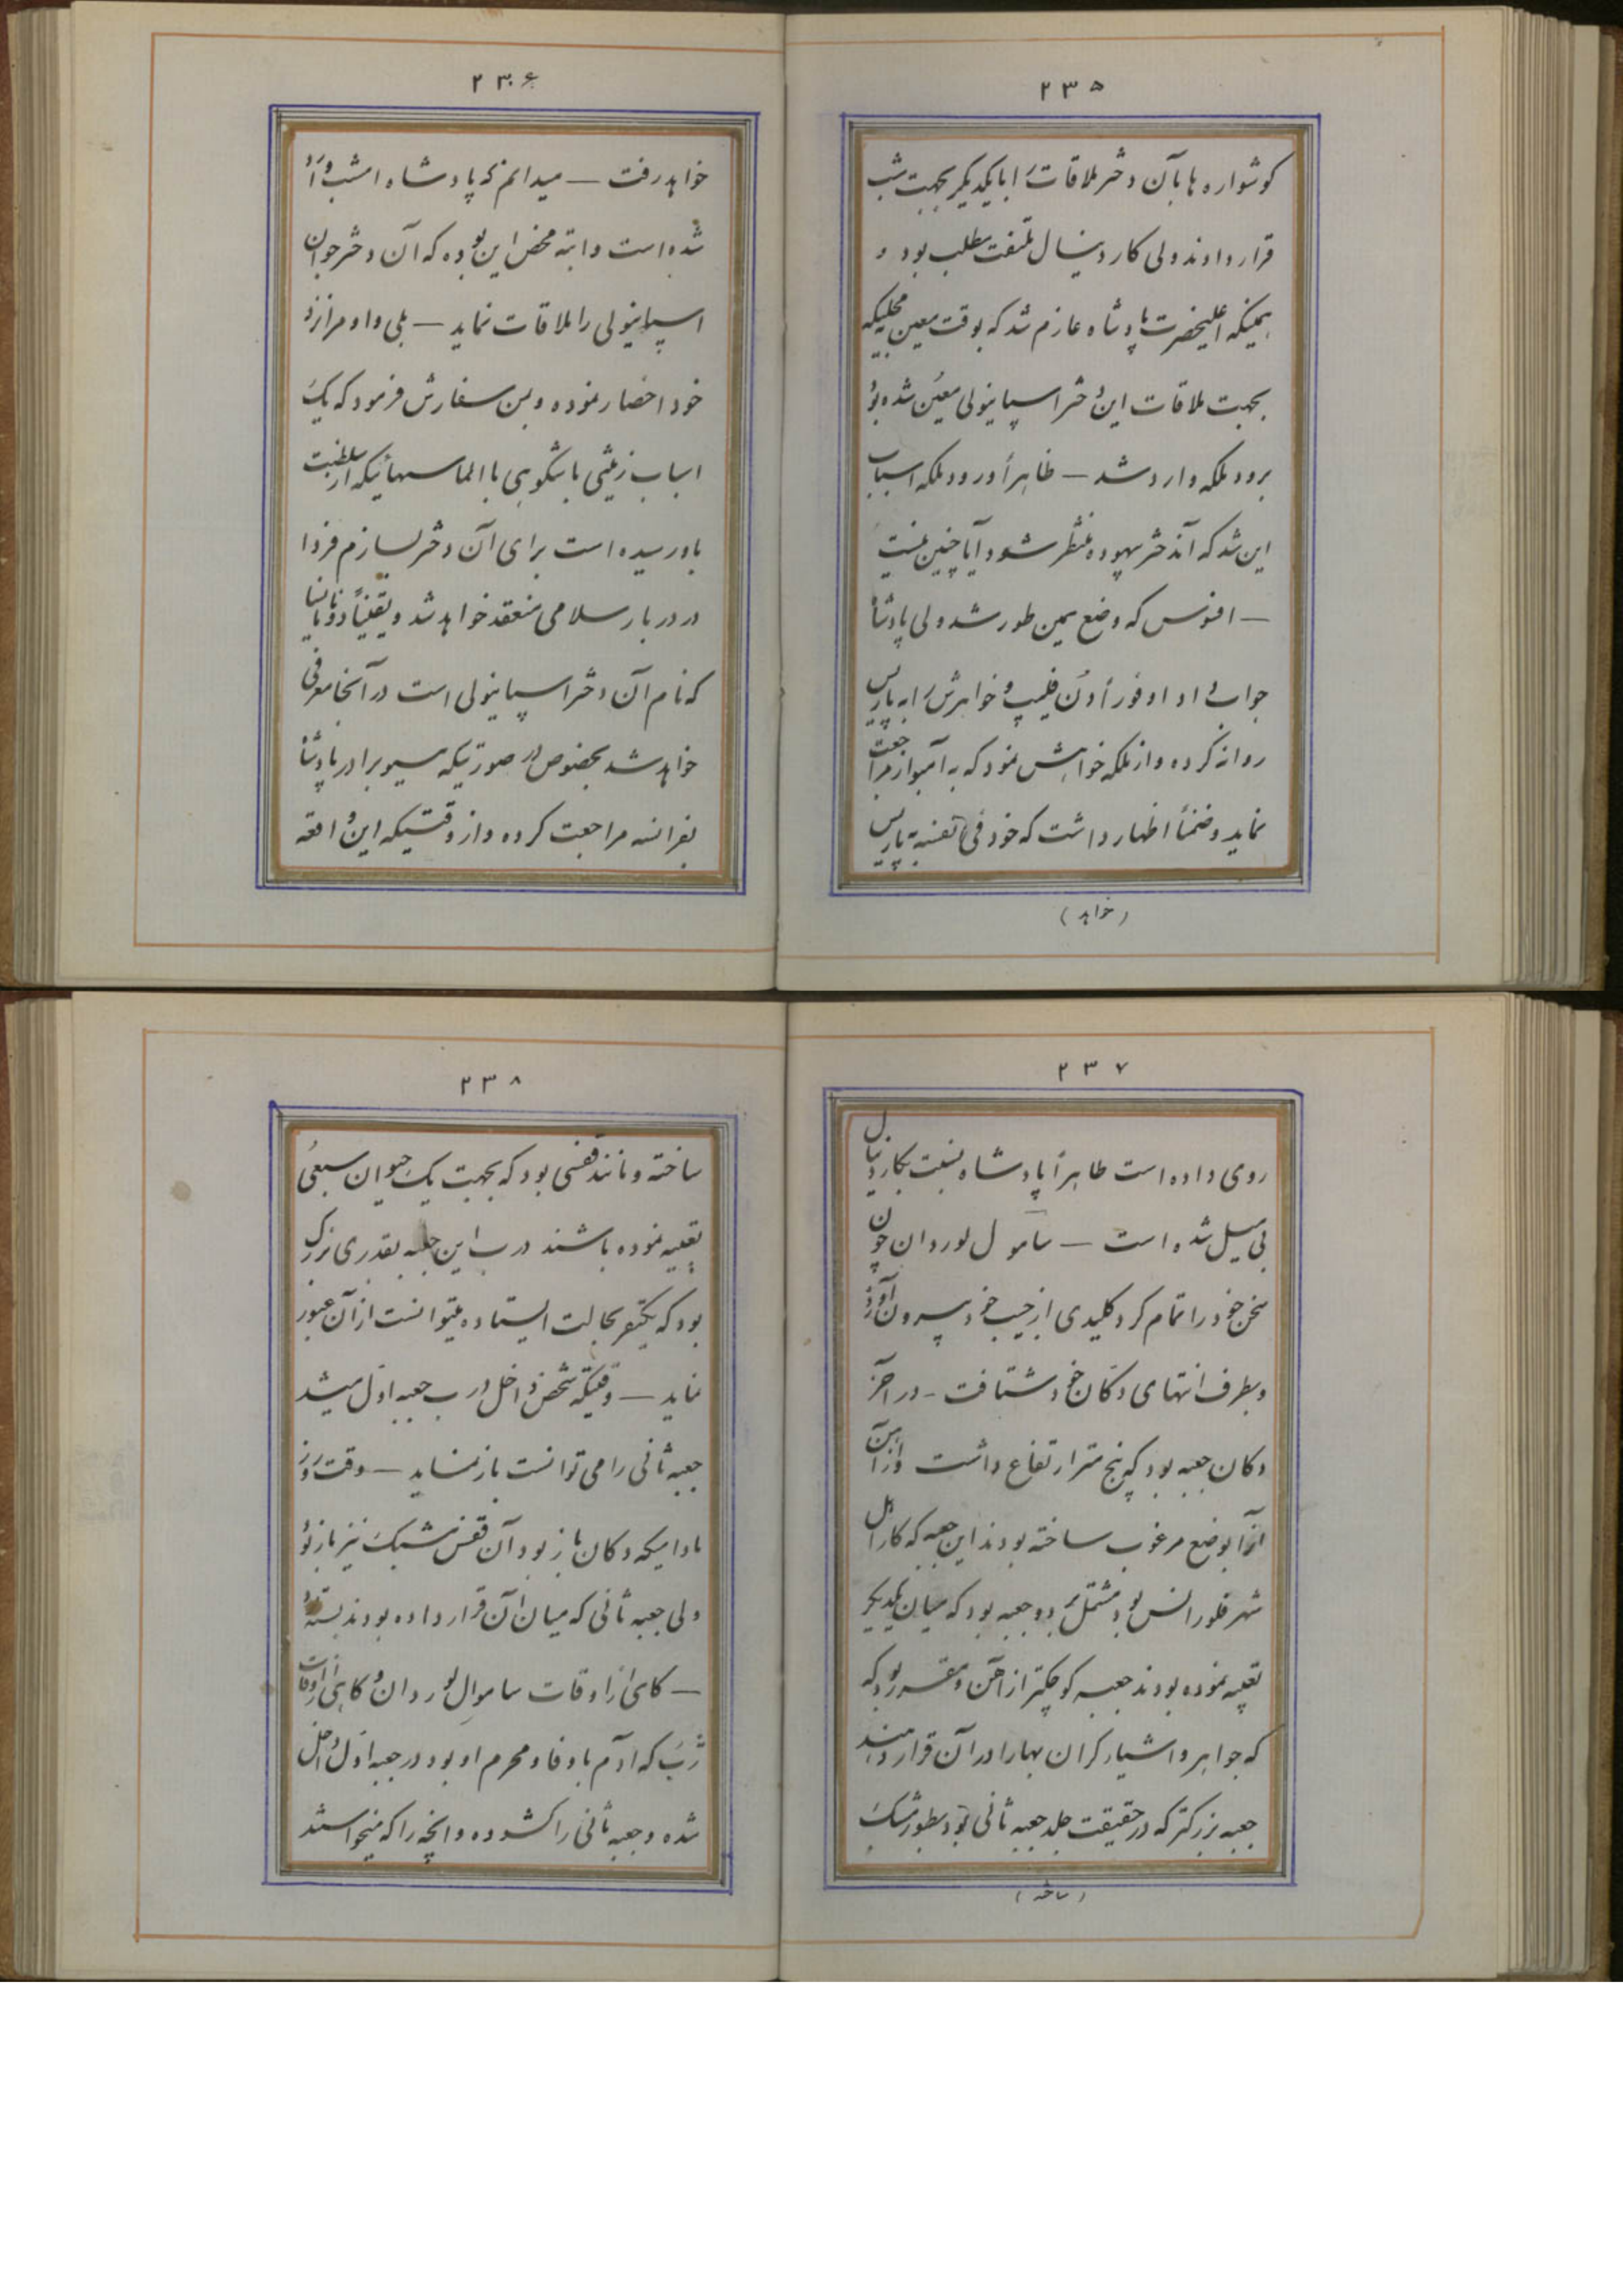 ۲۳۵
گوشواره ها بآن دختر ملاقات را با یکدیگر بجهت شب
قرار دادند ولی کاردینال ملتفت مطلب بود و
همینکه اعلیحضرت پادشاه عازم شد که بوقت معین محلیکه
بجهت ملاقات این دختر اسپانیولی معین شده بود
برود ملکه وارد شد — ظاهراً ورود ملکه اسباب
این شد که آندختر بیهوده منتظر شود آیا چنین نیست
— افسوس که وضع همین طور شد ولی پادشاه
جواب داد او فوراً دن فلیپ و خواهرش را به پاریس
روانه کرده و از ملکه خواهش نمود که به آمبواز مراجعت
نماید و ضمناً اظهار داشت که خود فی نفسه به پاریس
(خواهد)
۲۳۶
خواهد رفت — میدانم که پادشاه امشب وارد
شده است و البته محض این بوده که آن دختر جوان
اسپانیولی را ملاقات نماید — بلی و او مرا نزد
خود احضار نموده و بمن سفارش فرمود که یک
اسباب زینتی باشکوهی با الماسهائیکه از سلطنت
باو رسیده است برای آن دختر بسازم فردا
در دربار سلامی منعقد خواهد شد و یقیناً دونا نیا
که نام آن دختر اسپانیولی است در آنجا معرفی
خواهد شد بخصوص در صورتیکه مسیو برادر پادشاه
بفرانسه مراجعت کرده و از وقتیکه این واقعه
۲۳۷
روی داده است ظاهراً پادشاه نسبت بکاردینال
بی میل شده است — ساموال لوردان چون
سخن خود را تمام کرد کلیدی از جیب خود بیرون آورد
و بطرف انتهای دکان خود شتافت — در آخر
دکان جعبه بود که پنج متر ارتفاع داشت و از آهن
آنرا بوضع مرغوب ساخته بودند این جعبه که کار اهل
شهر فلورانس بود مشتمل بر دو جعبه بود که میان یکدیگر
تعبیه نموده بودند جعبه کوچکتر از آهن و مقرر بود که
که جواهر و اشیاء گران بها را در آن قرار دهند
جعبه بزرگتر که در حقیقت جلد جعبه ثانی بود بطور مشبک
(ساخته)
۲۳۸
ساخته و مانند قفسی بود که بجهت یک حیوان سبعی
تعبیه نموده باشند درب این جعبه بقدری بزرگ
بود که یکنفر بحالت ایستاده میتوانست از آن عبور
نماید — وقتیکه شخص داخل درب جعبه اول میشد
جعبه ثانی را می توانست باز نماید — وقت روز
مادامیکه دکان باز بود آن قفس مشبک نیز باز بود
ولی جعبه ثانی که میان آن قرار داده بودند بسته بود
— گاهی از اوقات ساموال لوردان و گاهی از اوقات
ژرب که آدم باوفا و محرم او بود در جعبه اول داخل
شده و جعبه ثانی را گشوده و آنچه را که میخواستند